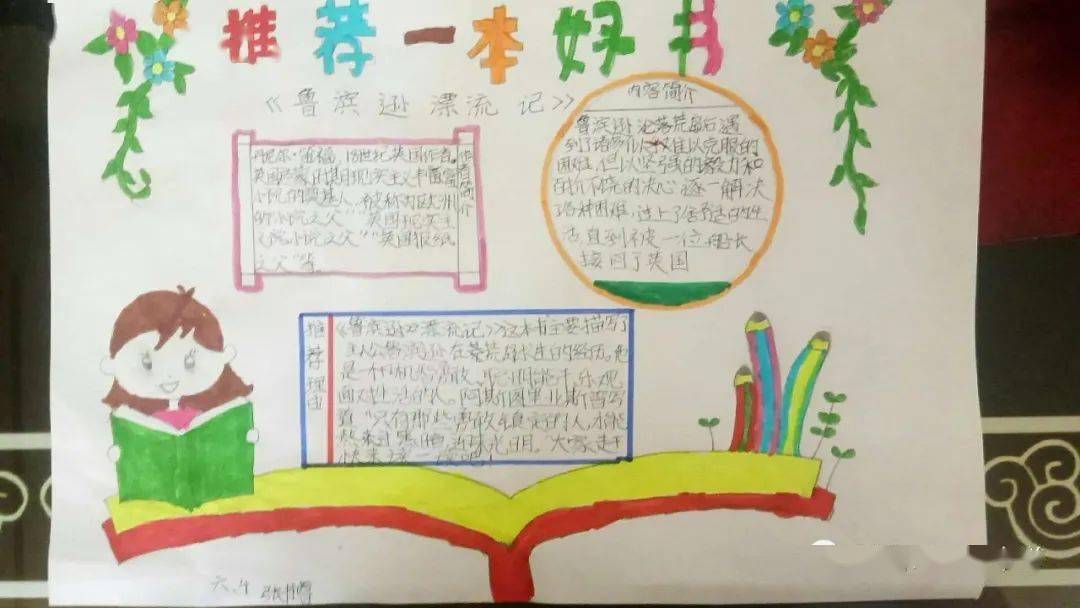 推荐一本好书
《鲁滨逊漂流记》
作者简介
丹尼尔·笛福,18世纪英国作者,
英国启蒙时期现实主义丰富
小说的奠基人,被称为欧洲
的“小说之父”“英国现实主
义小说之父”“英国报纸
之父”等
内容简介
鲁滨逊沦落荒岛后遇
到了诸多以难以克服的
困难,但以坚强的毅力和
百折不挠的决心逐一解决
了各种困难,过上了舒适的生
活,直到被一位船长
接回了英国
推荐理由
《鲁滨逊漂流记》这本书主要描写了
主人公鲁滨逊在荒岛求生的经历,他
是个机智勇敢、乐观
面对生活的人。阿斯图里亚斯曾写
道“只有那些勇敢镇定的人,才能
熬过黑暗,迎来光明。”大家赶
快来读一读吧!
六.4